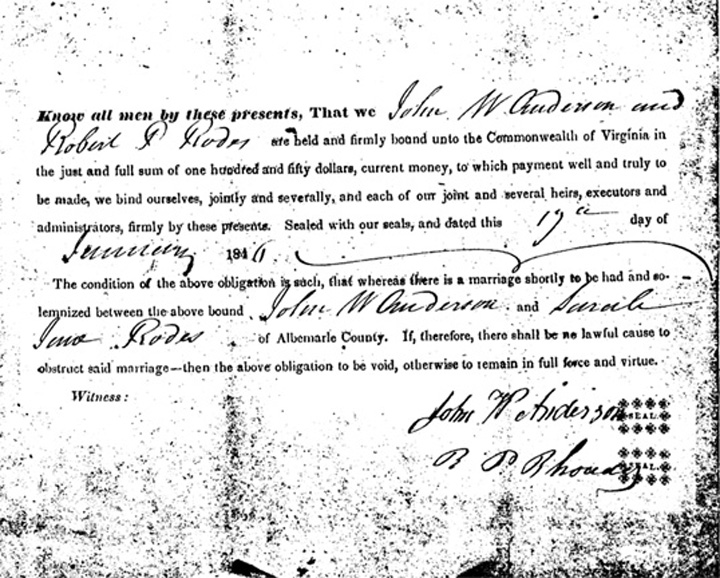 Know all men by these presents, That we John W Anderson and
Robert P Rodes are held and firmly bound unto the Commonwealth of Virginia in
the just and full sum of one hundred and fifty dollars, current money, to which payment well and truly to
be made, we bind ourselves, jointly and severally, and each of our joint and several heirs, executors and
administrators, firmly by these presents. Sealed with our seals, and dated this 19th day of
January 184
The condition of the above obligation is such, that whereas there is a marriage shortly to be had and so-
lemnized between the above bound John W Anderson and Sarah
Jane Rodes of Albemarle County. If, therefore, there shall be no lawful cause to
obstruct said marriage—then the above obligation to be void, otherwise to remain in full force and virtue.
Witness:
John W Anderson SEAL.
R P Rhoades SEAL.